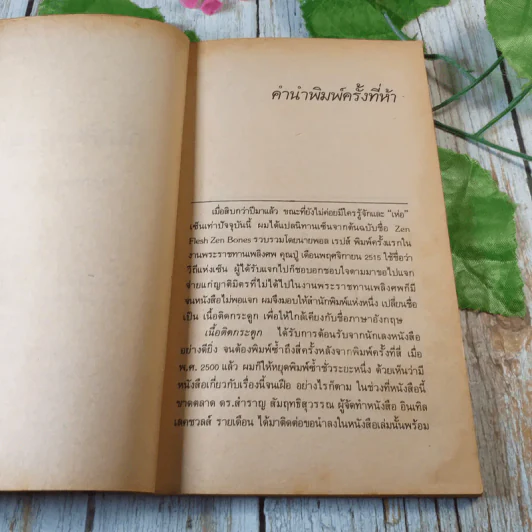 คำนำพิมพ์ครั้งที่ห้า
เมื่อสิบกว่าปีมาแล้ว ขณะที่ยังไม่ค่อยมีใครรู้จักและ "เห่อ"
เซ็นเท่าปัจจุบันนี้ ผมได้แปลนิทานเซ็นจากต้นฉบับชื่อ Zen
Flesh Zen Bones รวบรวมโดยนายพอล เรปส์ พิมพ์ครั้งแรกใน
งานพระราชทานเพลิงศพ คุณปู่ เดือนพฤศจิกายน 2515 ใช้ชื่อว่า
วิถีแห่งเซ็น ผู้ได้รับแจกไปก็ชอบอกชอบใจตามมาขอไปแจก
จ่ายแก่ญาติมิตรที่ไม่ได้ไปในงานพระราชทานเพลิงศพก็มี
จนหนังสือไม่พอแจก ผมจึงมอบให้สำนักพิมพ์แห่งหนึ่ง เปลี่ยนชื่อ
เป็น เนื้อติดกระดูก เพื่อให้ใกล้เคียงกับชื่อภาษาอังกฤษ
เนื้อติดกระดูก ได้รับการต้อนรับจากนักเลงหนังสือ
อย่างดียิ่ง จนต้องพิมพ์ซ้ำถึงสี่ครั้งหลังจากพิมพ์ครั้งที่สี่ เมื่อ
พ.ศ. 2500 แล้ว ผมก็ให้หยุดพิมพ์ซ้ำชั่วระยะหนึ่ง ด้วยเห็นว่ามี
หนังสือเกี่ยวกับเรื่องนี้จนเฝือ อย่างไรก็ตาม ในช่วงที่หนังสือนี้
ขาดตลาด ดร.สำราญ สัมฤทธิสุวรรณ ผู้จัดทำหนังสือ อินเทิล
เลคชวลส์ รายเดือน ได้มาติดต่อขอนำลงในหนังสือเล่มนั้นพร้อม